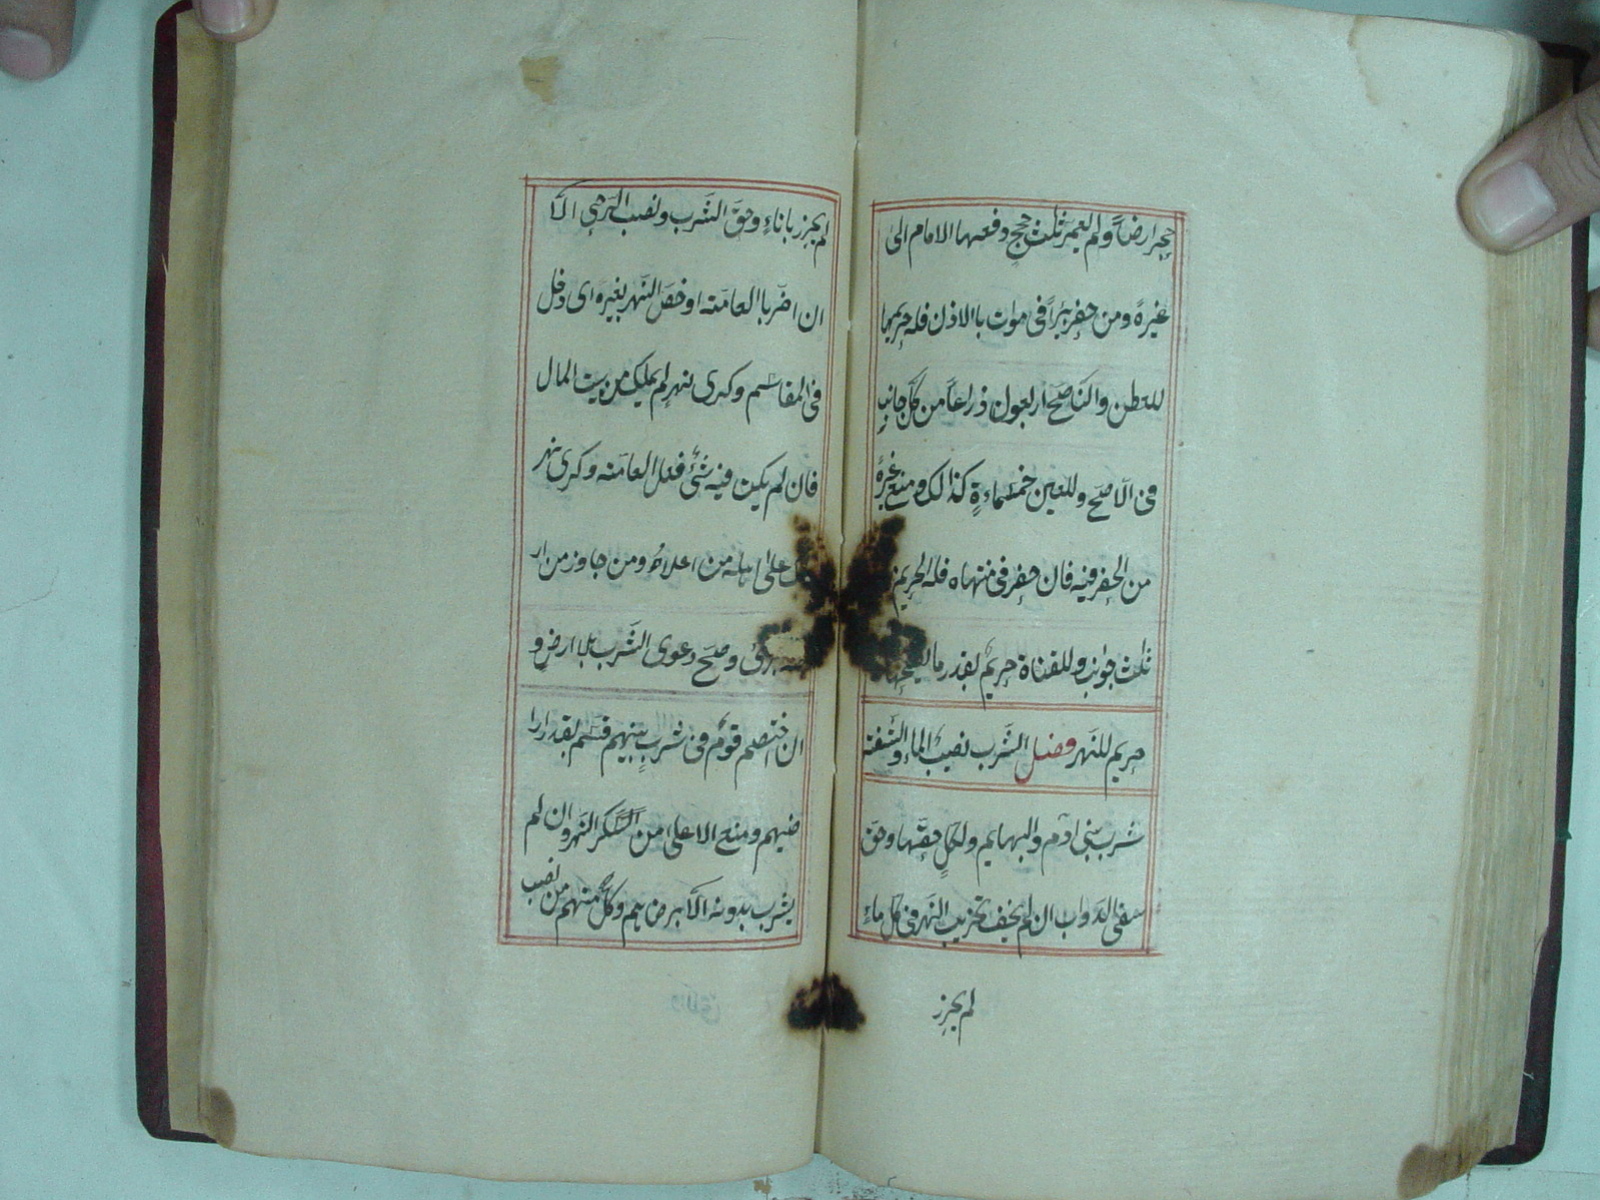 حجر ارضاً ولم يعمر ثلث حجج دفعها الامام الى
غيرهٔ ومن حفر بئراً فى موات بالاذن فله حريمها
للعطن والناضح اربعون ذراعاً من كل جانب
فى الاصح وللعين خمسماءة كذالك ومنع غيره
من الحفر فيه فان حفر فى منتهاه فله الحريم من
ثلث جوانب وللقناة حريم بقدر ما يصلحها
حريم للنهر فصل الشرب نصيب الماء والشفة
شرب بنى ادم والبهايم ولكل حقها وحق
سقى الدواب ان لم يخف تخريب النهر فى كل ماء
لم يحرز
لم يحرز باناء وحق الشرب ونصب الرحى الا
ان اضر باالعامة او خص النهر بغيره اى دخل
فى المقاسم وكرى نهر لم يملك من بيت المال
فان لم يكن فيه شئ فعلى العامة وكرى نهر
على اهله من اعلاه ومن جاوز من ار
برئ وصح دعوى الشرب بلا ارض و
ان اختصم قوم فى شرب بينهم قسم بقدر ارا
ضيهم ومنع الاعلى من السكر النهر وان لم
يشرب بدونه الا برضاهم وكل منهم من نصب